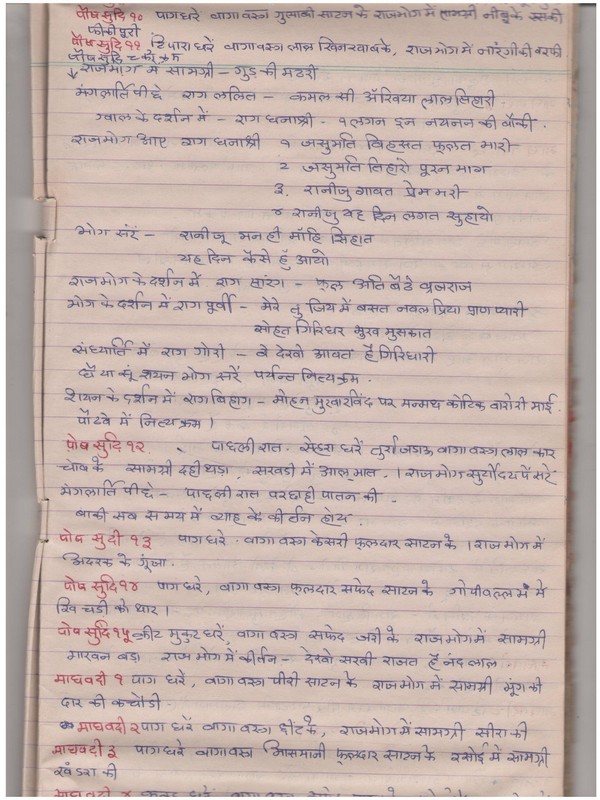 पौष सुदि १० पाग धरे वागा वस्त्र गुलाबी साटन के राजभोग में सामग्री नींबू के रस की
फीकी पूरी
पौष सुदि ११ टिपारा धरें वागा वस्त्र लाल खिनखाब के, राजभोग में नारंगी की बरफी
पौष सुदि
राजभोग में सामग्री - गुड की मठरी
मंगलार्ति पीछे राग ललित - कमल सी अँखिया लाल तिहारी.
ग्वाल के दर्शन में - राग धनाश्री - १ लगन इन नयनन की वाँकी.
राजभोग आए राग धनाश्री १ जसुमति विहसत फूलत भारी
२ जसुमति तिहारो पूरन भाग
३. रानीजु गावत प्रेम भरी
४ रानीजु यह दिन लगत सुहायो
भोग सरें - रानीजू मन ही माँहि सिहात
यह दिन कैसे हुँ आयो
राजभोग के दर्शन में राग सारंग - फूल अति बैठे व्रजराज
भोग के दर्शन में राग पूर्वी - मेरे तु जिय में बसत नवल प्रिया प्राण प्यारी
सोहत गिरिधर मुख मुसकात
संध्यार्ति में राग गोरी - वे देखो आवत हैं गिरिधारी
शयन भोग सरें पर्यन्त नित्यक्रम.
शयन के दर्शन में राग बिहाग - मोहन मुखारविंद पर मन्मथ कोटिक वारोरी माई.
पौढवे में नित्य क्रम।
पोष सुदि १२. पाछली रात. सेहरा धरें तुर्रा जडाऊ वागा वस्त्र लाल
सामग्री दही वडा, सखडी में आलू भात. । राजभोग सूर्योदय पे सरे
मंगलार्ति पीछे - पाछली रात परछाही पातन की.
बाकी सब समय में ब्याह के कीर्तन होय.
पोष सुदी १३ पाग धरे. वागा वस्त्र केसरी फूलदार साटन के । राजभोग में
अदरक के गूंजा.
पोष सुदि १४ पाग धरे, वागा वस्त्र फूलदार सफेद साटन के गोपीवल्लभ में
खिचडी को थार।
पोष सुदि १५ क्रीट मुकुट धरें, वागा वस्त्र सफेद जरी के राजभोग में सामग्री
माखन बडा. राजभोग में कीर्तन - देखो सखी राजत हैं नंदलाल.
माघ वदी १ पाग धरे, वागा वस्त्र पीरी साटन के राजभोग में सामग्री मूंग की
दार की कचौडी.
माघवदी २ पाग धरें वागा वस्त्र छींट के, राजभोग में सामग्री सीरा की
माघवदी ३ पाग धरे वागा वस्त्र आसमानी फूलदार साटन के रसोई में सामग्री
खंडरा की
माघवदी ४